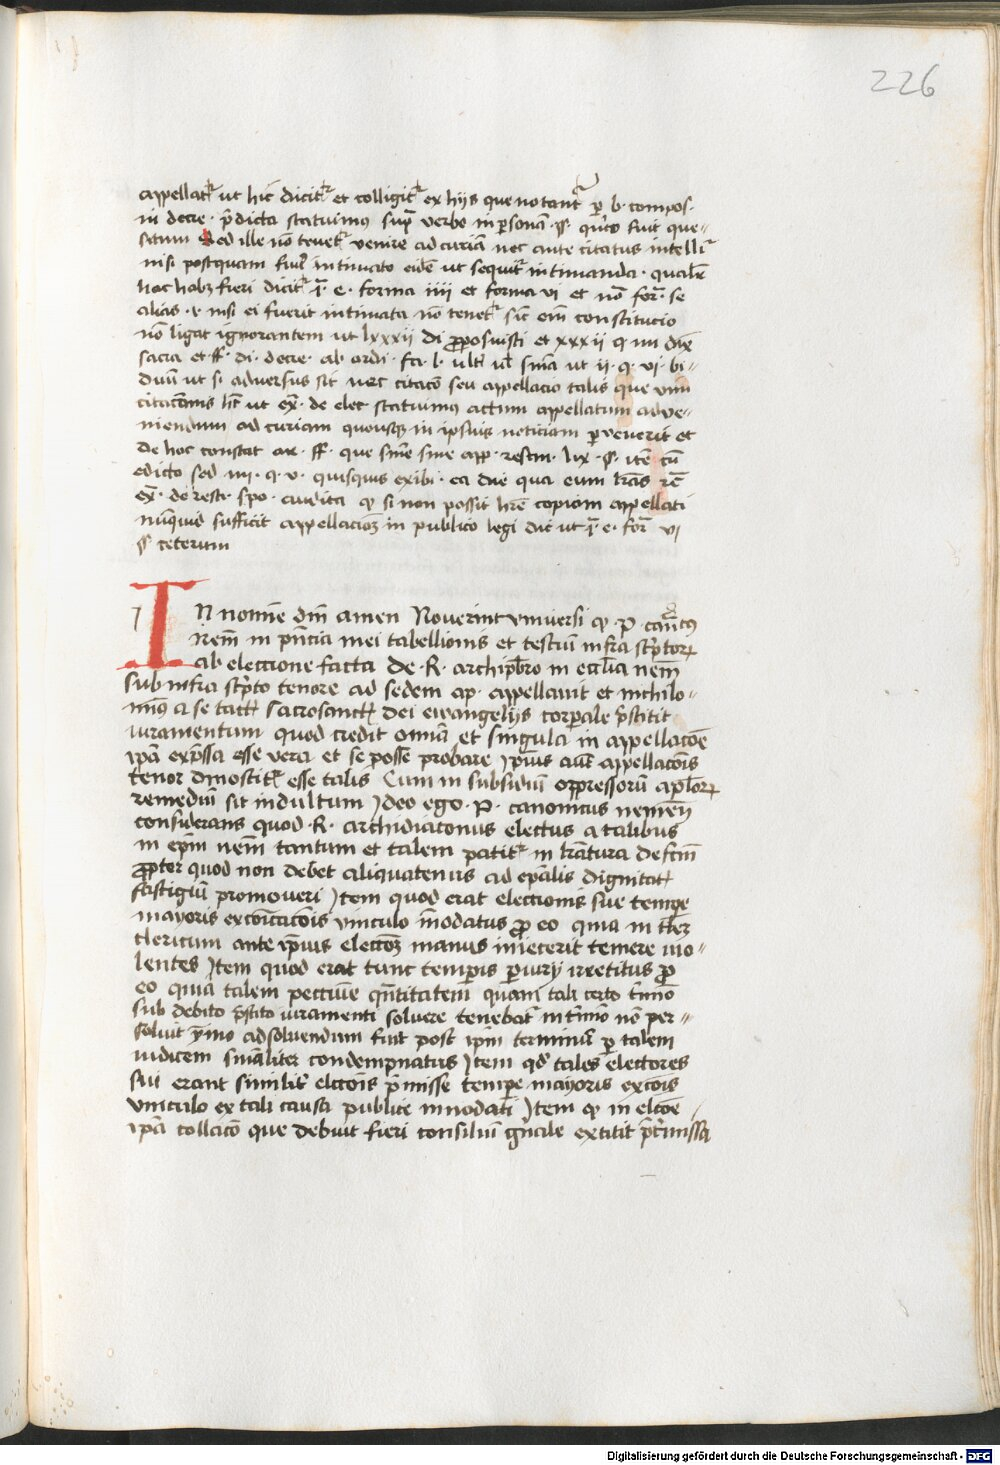 226
appellatur ut hic dicitur et colligitur ex hijs que notantur per b. compos.
in decre. predicta statuimus supra verbo in personam § quinto fuit que-
situm Sed ille non tenetur venire ad curiam nec ante citatus intelligitur
nisi postquam fuit intimato eidem ut sequitur intimanda. qualem
hac habet fieri dicitur e. forma iiii et forma vi et non for. se
alias. nisi ei fuerit intimata non tenetur sic enim constitucio
non ligat ignorantem ut lxxxii di proposuisti et xxxii q iiii
sacia et ff. di. decre. ab ordi. l. ulti ut ii. q. vi. bi-
duum ut si adversus sit nec citacio seu appellacio talis que vim
citacionis habet ut ex. de elec statuimus actum appellatum adve-
niendum ad curiam quousque in ipsius noticiam pervenerit et
de hoc constat ar. ff. que sine app. rescin. lix. § item cum
edicto sed iii. q. v. quisquis exibi. ea die qua eum literas rem
ex. de resti. spo. audita quod si non possit habere copiam appellati
nunquid sufficit appellacionem in publico legi dic ut e. for vi
§ ceterum
IN nomine domini amen Noverint universi quod P. canonicus
Nem in presencia mei tabellionis et testium infra scriptorum
ab eleccione facta de R. archipresbitero in ecclesia nem
sub infra scripto tenore ad sedem ap. appellavit et nichilo-
minus a se tactis sacrosanctis dei ewangelijs corporale prestitit
iuramentum quod credit omnia et singula in appellacione
ipsa expressa esse vera et se posse probare ipsius autem appellacionis
tenor dinoscitur esse talis Cum in subsidium oppressorum apellatorum
remedium sit indultum Ideo ego. P. canonicus nemen
considerans quod R. archidiaconus electus a talibus
in episcopum nem tantum et talem patitur in literatura defectum
propter quod non debet aliquatenus ad episcopalis dignitatis
fastigium promoveri Item quod erat electionis sue tempore
mayoris excommunicacionis vinculo innodatus pro eo quia in
clericum ante ipsius eleccionem manus iniecerit temere vio-
lentes Item quod erat tunc temporis periurij irretitus pro
eo quia talem peccunie quantitatem quam tali certo termino
sub debito prestito iuramenti solvere tenebatur in termino non per-
solvit ymo ad solvendum fuit post ipsum terminum per talem
iudicem sinaliter condempnatus Item quod tales electores
sui erant similiter eleccionis premisse tempore mayoris excommunicacionis
vinculo ex tali causa publice innodati Item quod in eleccione
ipsa collacio que debuit fieri consilium generale extitit pretermissa
Digitalisierung gefördert durch die Deutsche Forschungsgemeinschaft - DFG